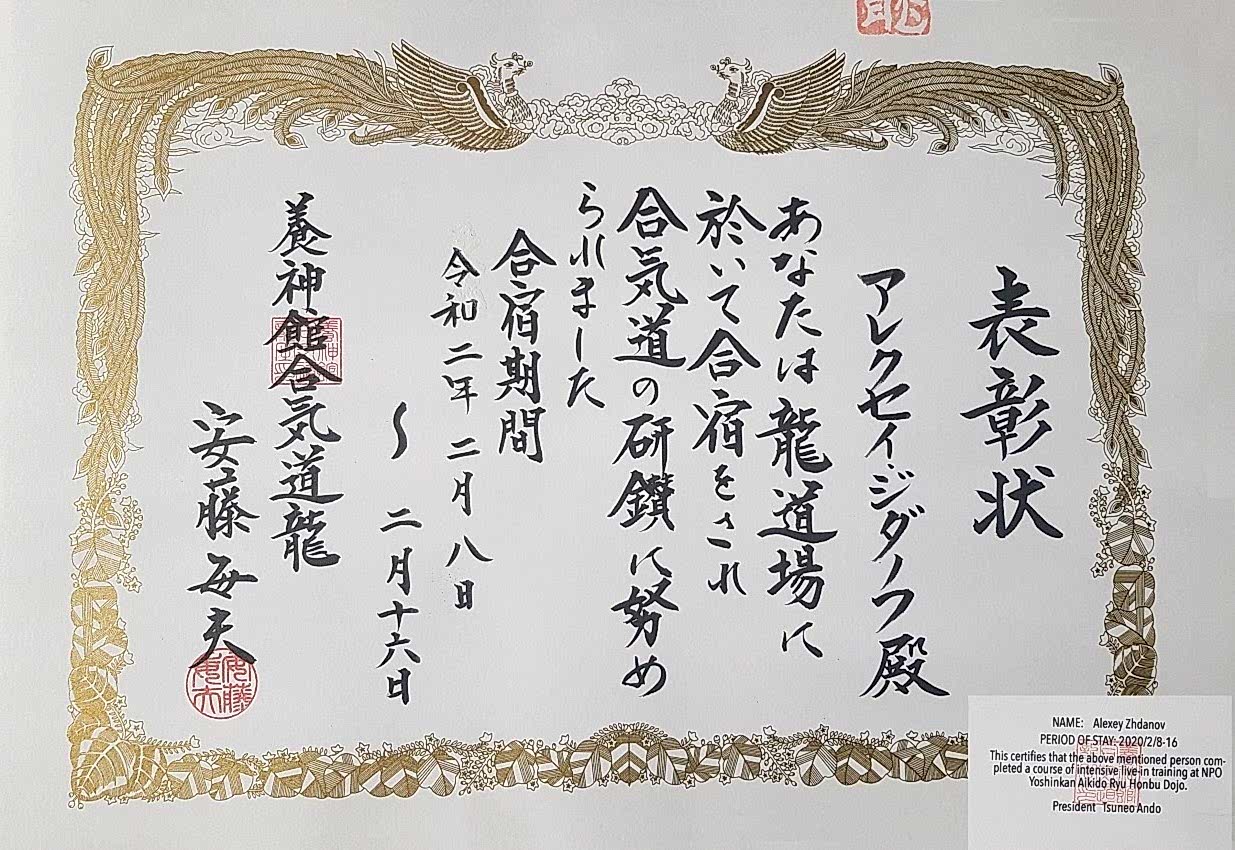 表彰状
アレクセイ・ジダーノフ殿
あなたは龍道場に
於いて合宿をされ
合気道の研鑽に努め
られました
合宿期間
令和二年二月八日
〜二月十六日
養神館合気道龍
安藤毎夫
安藤毎夫
NAME: Alexey Zhdanov
PERIOD OF STAY: 2020/2/8-16
This certifies that the above mentioned person com-
pleted a course of intensive live-in training at NPO
Yoshinkan Aikido Ryu Honbu Dojo.
President Tsuneo Ando